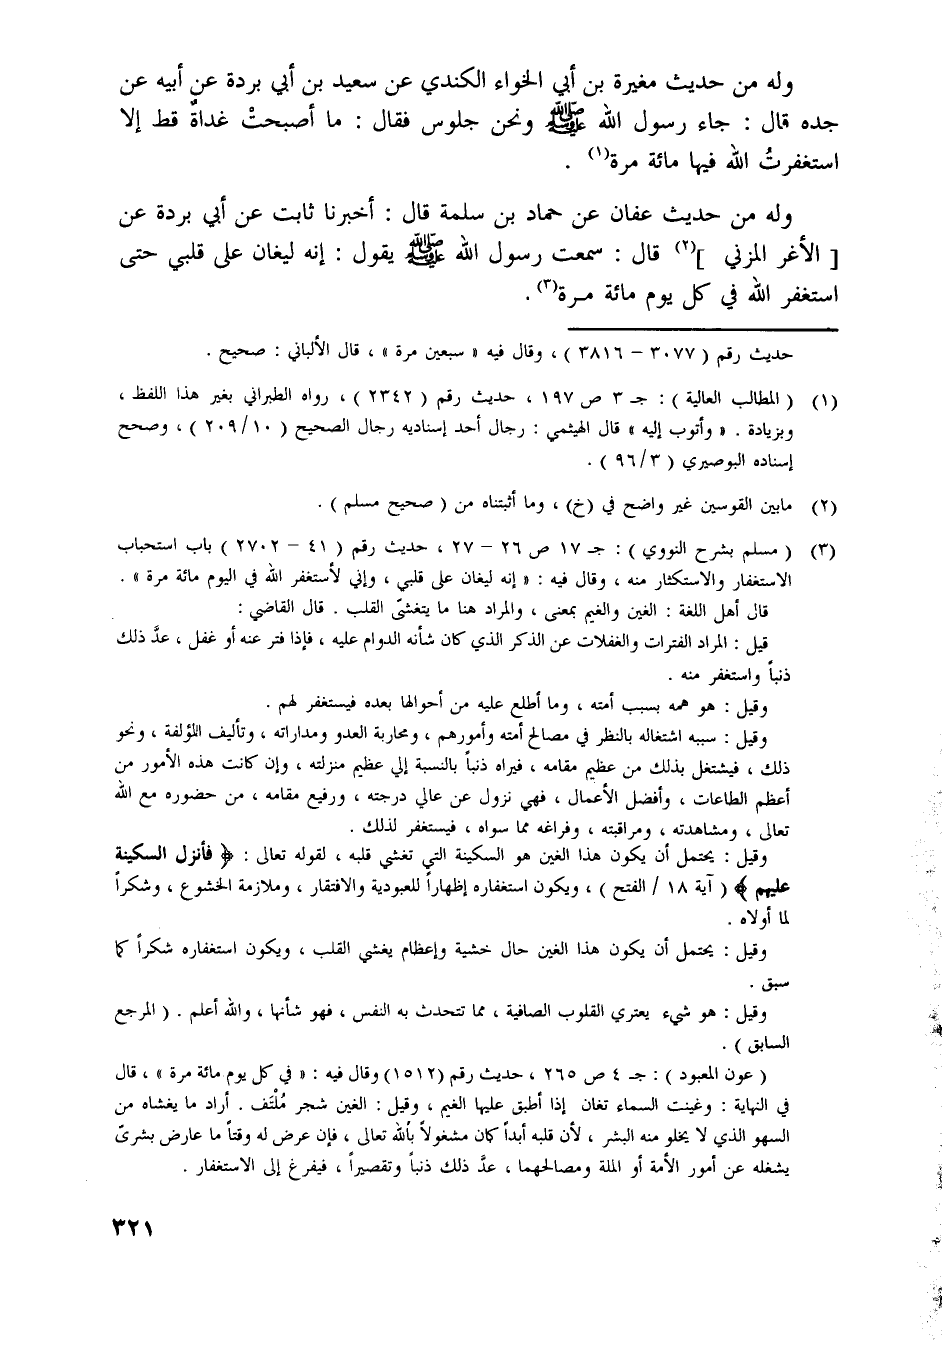 وله من حديث مغيرة بن أبي الخواء الكندي عن سعيد بن أبي بردة عن أبيه عن
جده قال : جاء رسول الله ﷺ ونحن جلوس فقال : ما أصبحتْ غداةٌ قط إلا
استغفرتُ الله فيها مائة مرة(١) .
وله من حديث عفان عن حماد بن سلمة قال : أخبرنا ثابت عن أبي بردة عن
[ الأغر المزني ](٢) قال : سمعت رسول الله ﷺ يقول : إنه ليغان على قلبي حتى
استغفر الله في كل يوم مائة مـرة(٣) .
حديث رقم ( ٣٠٧٧ – ٣٨١٦ ) ، وقال فيه « سبعين مرة » ، قال الألباني : صحيح .
(١) ( المطالب العالية ) : جـ ٣ ص ١٩٧ ، حديث رقم ( ٢٣٤٢ ) ، رواه الطبراني بغير هذا اللفظ ،
وبزيادة . « وأتوب إليه » قال الهيثمي : رجال أحد إسناديه رجال الصحيح ( ٢٠٩/١٠ ) ، وصحح
إسناده البوصيري ( ٩٦/٣ ) .
(٢) مابين القوسين غير واضح في (خ) ، وما أثبتناه من ( صحيح مسلم ) .
(٣) ( مسلم بشرح النووي ) : جـ ١٧ ص ٢٦ – ٢٧ ، حديث رقم ( ٤١ – ٢٧٠٢ ) باب استحباب
الاستغفار والاستكثار منه ، وقال فيه : « إنه ليغان على قلبي ، وإني لأستغفر الله في اليوم مائة مرة » .
قال أهل اللغة : الغين والغيم بمعنى ، والمراد هنا ما يتغشىّ القلب . قال القاضي :
قيل : المراد الفترات والغفلات عن الذكر الذي كان شأنه الدوام عليه ، فإذا فتر عنه أو غفل ، عدَّ ذلك
ذنباً واستغفر منه .
وقيل : هو همه بسبب أمته ، وما أطلع عليه من أحوالها بعده فيستغفر لهم .
وقيل : سببه اشتغاله بالنظر في مصالح أمته وأمورهم ، ومحاربة العدو ومداراته ، وتأليف اللؤلفة ، ونحو
ذلك ، فيشتغل بذلك من عظيم مقامه ، فيراه ذنباً بالنسبة إلي عظيم منزلته ، وإن كانت هذه الأمور من
أعظم الطاعات ، وأفضل الأعمال ، فهي نزول عن عالي درجته ، ورفيع مقامه ، من حضوره مع الله
تعالى ، ومشاهدته ، ومراقبته ، وفراغه مما سواه ، فيستغفر لذلك .
وقيل : يحتمل أن يكون هذا الغين هو السكينة التي تغشي قلبه ، لقوله تعالى : ﴿ فأنزل السكينة
عليهم ﴾ ( آية ١٨ / الفتح ) ، ويكون استغفاره إظهاراً للعبودية والافتقار ، وملازمة الخشوع ، وشكراً
لما أولاه .
وقيل : يحتمل أن يكون هذا الغين حال خشية وإعظام يغشي القلب ، ويكون استغفاره شكراً كما
سبق .
وقيل : هو شيء يعتري القلوب الصافية ، مما تتحدث به النفس ، فهو شأنها ، والله أعلم . ( المرجع
السابق ) .
( عون المعبود ) : جـ ٤ ص ٢٦٥ ، حديث رقم (١٥١٢) وقال فيه : « في كل يوم مائة مرة » ، قال
في النهاية : وغينت السماء تغان إذا أطبق عليها الغيم ، وقيل : الغين شجر مُلْتَف . أراد ما يغشاه من
السهو الذي لا يخلو منه البشر ، لأن قلبه أبداً كان مشغولاً بالله تعالى ، فإن عرض له وقتاً ما عارض بشرىّ
يشغله عن أمور الأمة أو الملة ومصالحهما ، عدَّ ذلك ذنباً وتقصيراً ، فيفرغ إلى الاستغفار .
٣٢١